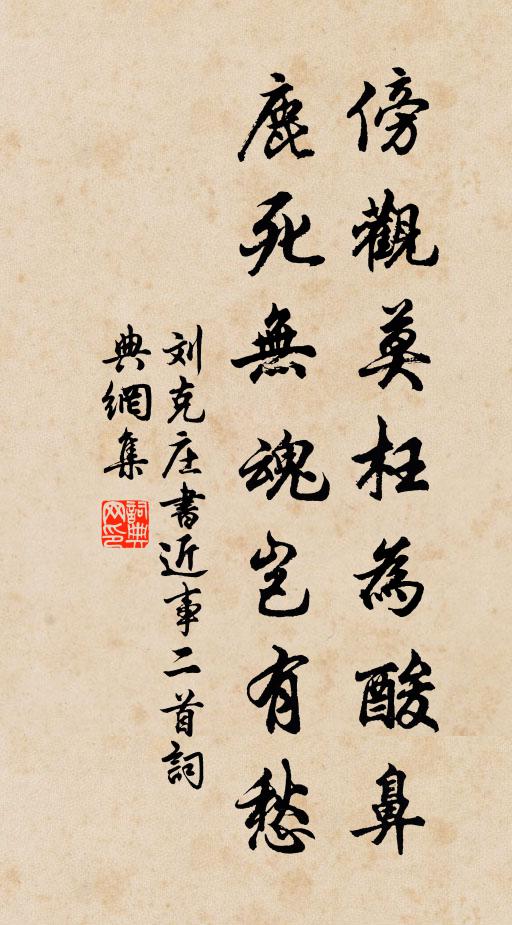 傍觀莫枉為酸鼻
鹿死無魂豈有愁
刘克庄書近事二首詞
典網集
詞典
网印